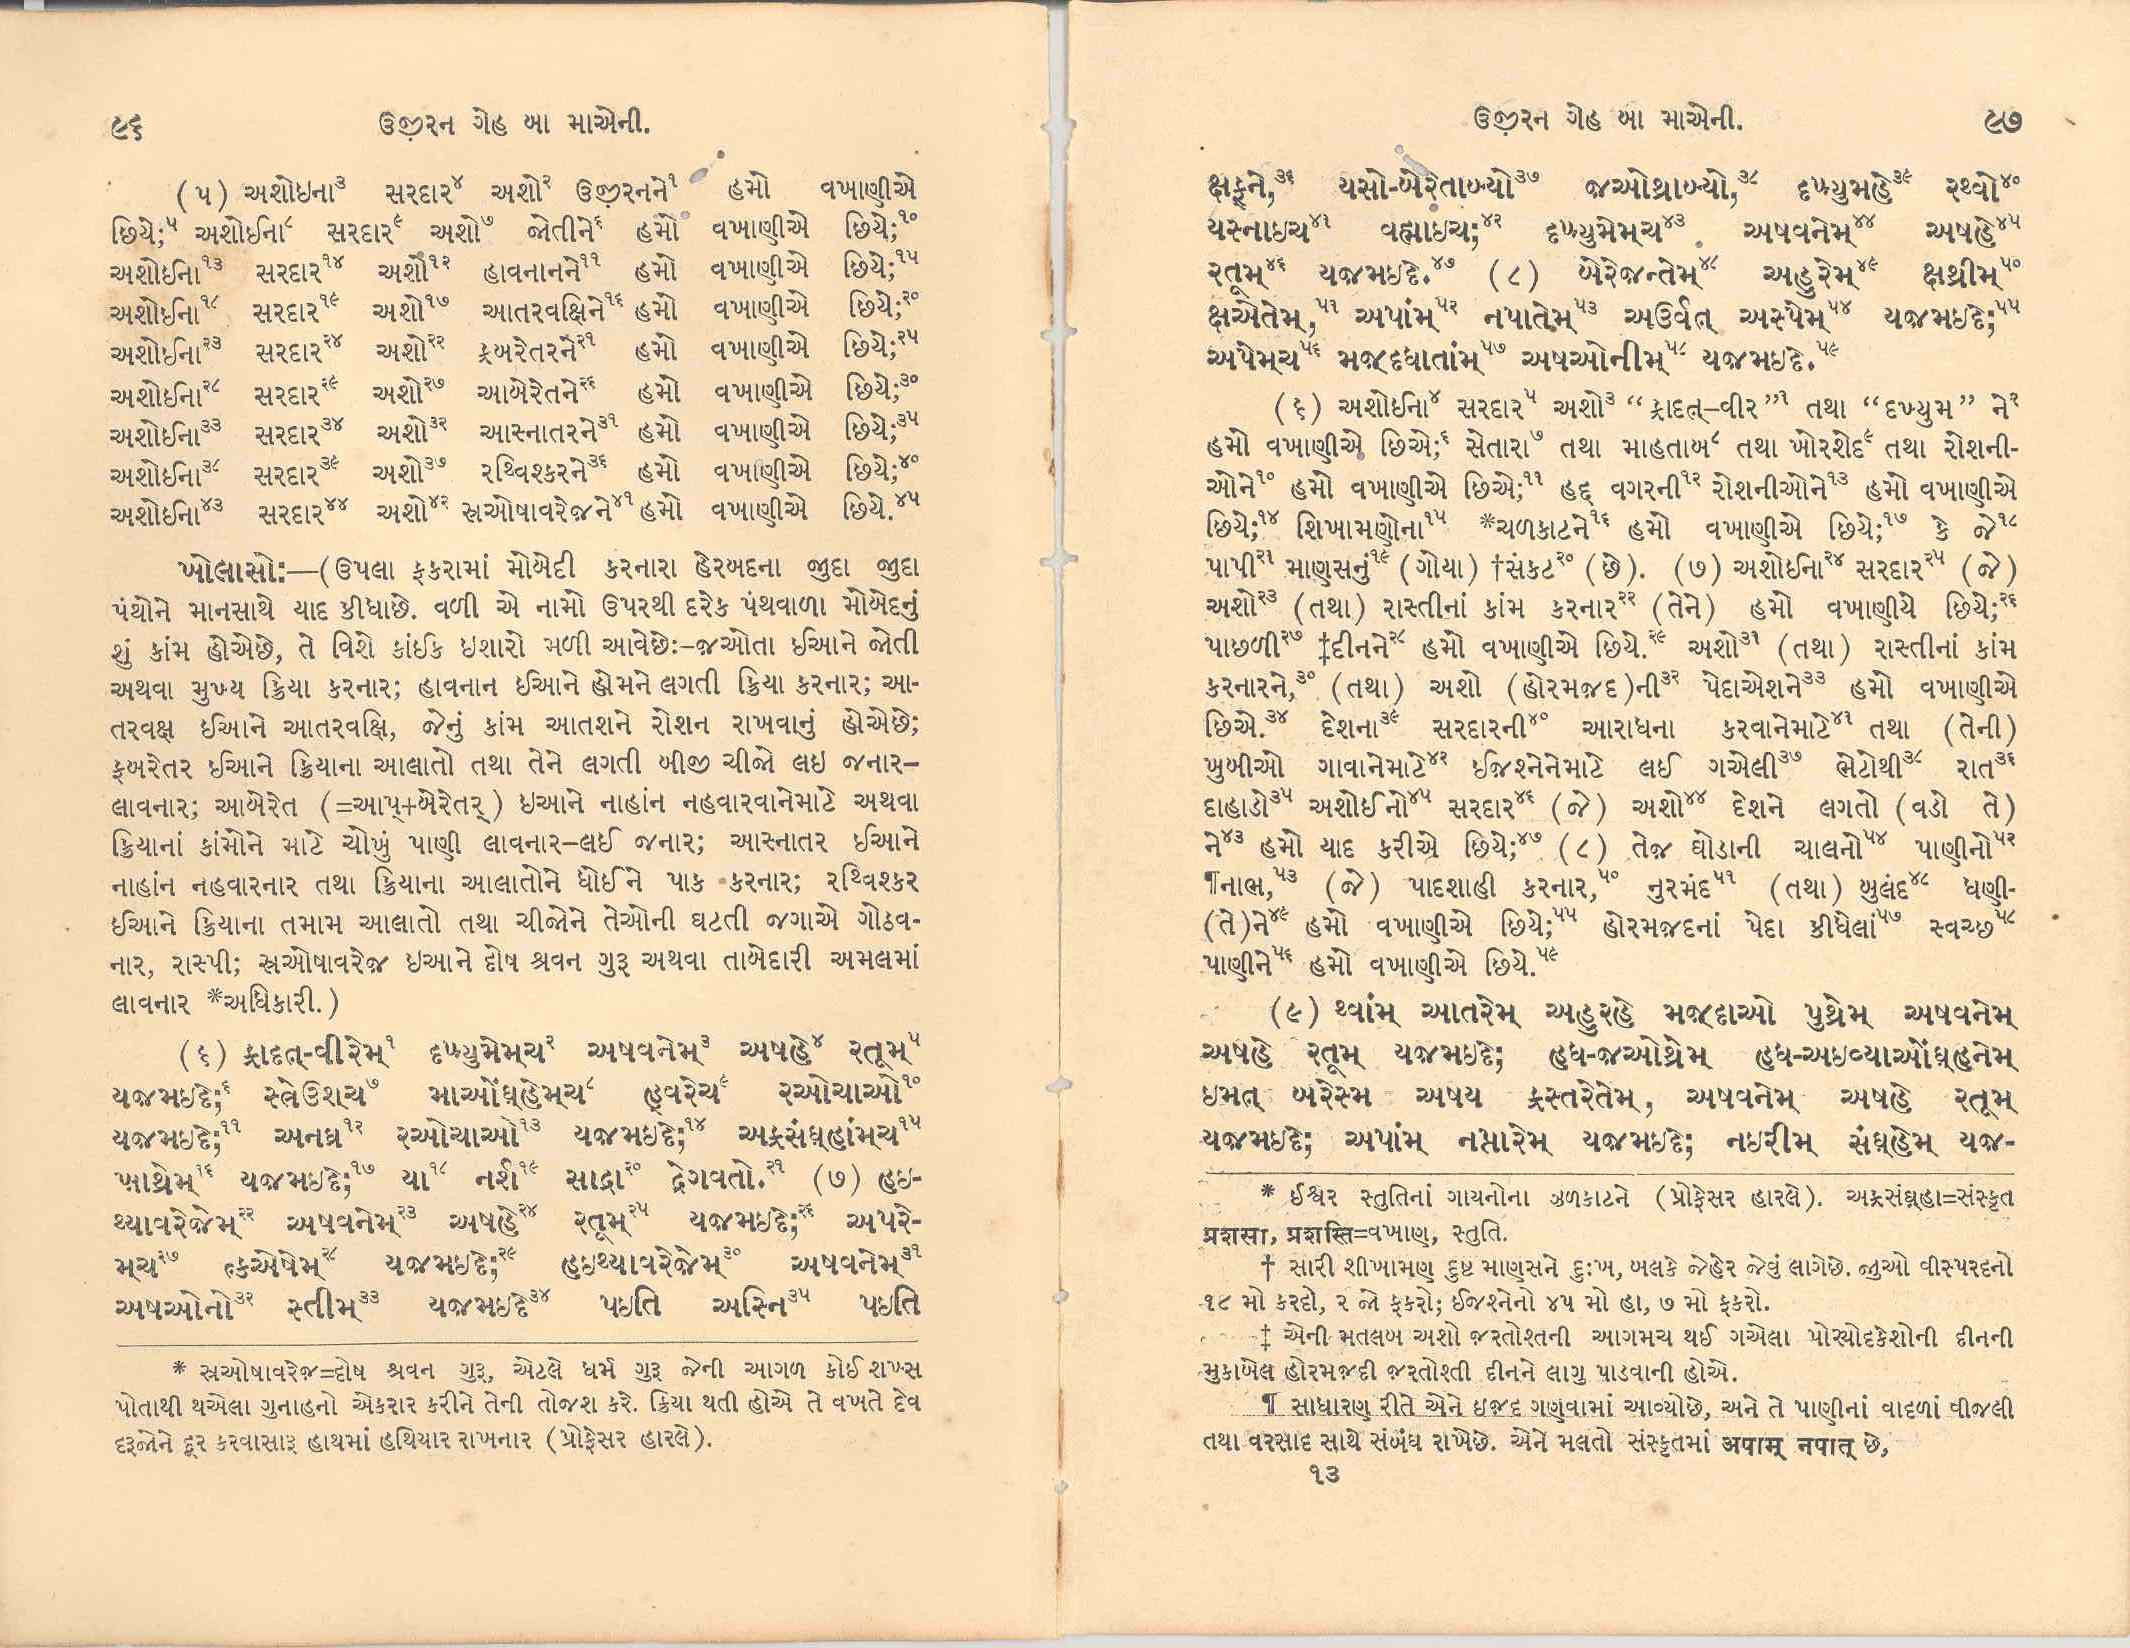 ૯૬
ઉજ઼ીરન ગેહ બા માએની.
(૫) અશોઇના૩ સરદાર૪ અશો૨ ઉજ઼ીરનને૧ હમો વખાણીએ
છિયે;૫ અશોઈના૮ સરદાર૯ અશો૭ જોતીને૬ હમો વખાણીએ છિયે;૧૦
અશોઈના૧૩ સરદાર૧૪ અશો૧૨ હાવનાનને૧૧ હમો વખાણીએ છિયે;૧૫
અશોઈના૧૮ સરદાર૧૯ અશો૧૭ આતરવક્ષિને૧૬ હમો વખાણીએ છિયે;૨૦
અશોઈના૨૩ સરદાર૨૪ અશો૨૨ ફ્રબરેતરને૨૧ હમો વખાણીએ છિયે;૨૫
અશોઈના૨૮ સરદાર૨૯ અશો૨૭ આબેરેતને૨૬ હમો વખાણીએ છિયે;૩૦
અશોઈના૩૩ સરદાર૩૪ અશો૩૨ આસ્નાતરને૩૧ હમો વખાણીએ છિયે;૩૫
અશોઈના૩૮ સરદાર૩૯ અશો૩૭ રથ્વિશ્કરને૩૬ હમો વખાણીએ છિયે;૪૦
અશોઈના૪૩ સરદાર૪૪ અશો૪૨ સ્રઓષાવરેજ઼ને૪૧ હમો વખાણીએ છિયે.૪૫
ખોલાસો:—(ઉપલા ફકરામાં મોબેદી કરનારા હેરબદના જુદા જુદા
પંથોને માનસાથે યાદ કીધાછે. વળી એ નામો ઉપરથી દરેક પંથવાળા મોબેદનું
શું કાંમ હોએછે, તે વિશે કાંઈક ઇશારો મળી આવેછેઃ–જ઼ઓતા ઈઆને જોતી
અથવા મુખ્ય ક્રિયા કરનાર; હાવનાન ઈઆને હોમને લગતી ક્રિયા કરનાર; આ-
તરવક્ષ ઈઆને આતરવક્ષિ, જેનું કાંમ આતશને રોશન રાખવાનું હોએછે;
ફ્રબરેતર ઇઆને ક્રિયાના આલાતો તથા તેને લગતી બીજી ચીજો લઇ જનાર–
લાવનાર; આબેરેત (=આપ્+બેરેતર્) ઇઆને નાહાંન નહવારવાનેમાટે અથવા
ક્રિયાનાં કાંમોને માટે ચોખું પાણી લાવનાર–લઈ જનાર; આસ્નાતર ઈઆને
નાહાંન નહવારનાર તથા ક્રિયાના આલાતોને ધોઈને પાક કરનાર; રથ્વિશ્કર
ઈઆને ક્રિયાના તમામ આલાતો તથા ચીજોને તેઓની ઘટતી જગાએ ગોઠવ-
નાર, રાસ્પી; સ્રઓષાવરેજ઼ ઇઆને દોષ શ્રવન ગુરૂ અથવા તાબેદારી અમલમાં
લાવનાર *અધિકારી.)
(૬) ફ્રાદત્-વીરેમ્૧ દખ્યુમેમ્ચ૨ અષવનેમ્૩ અષહે૪ રતૂમ્૫
યજ઼મઇદે;૬ સ્ત્રેઉશ્ચ૭ માઓંઘ્હેમ્ચ૮ હ્વરેચ૯ રઓચાઓ૧૦
યજ઼મઇદે;૧૧ અનઘ્ર૧૨ રઓચાઓ૧૩ યજ઼મઇદે;૧૪ અફ્રસંઘ્હાંમ્ચ૧૫
ખ઼ાથ્રેમ્૧૬ યજ઼મઇદે;૧૭ યા૧૮ નર્શ૧૯ સાદ્રા૨૦ દ્રેગવતો.૨૧ (૭) હઇ-
થ્યાવરેજ઼ેમ્૨૨ અષવનેમ્૨૩ અષહે૨૪ રતૂમ્૨૫ યજ઼મઇદે;૨૬ અપરે-
મ્ચ૨૭ ત્કએષેમ્૨૮ યજ઼મઇદે;૨૯ હઇથ્યાવરેજ઼ેમ્૩૦ અષવનેમ્૩૧
અષઓનો૩૨ સ્તીમ્૩૩ યજ઼મઇદે૩૪ પઇતિ અસ્નિ૩૫ પઇતિ
* સ્રઓષાવરેજ઼=દોષ શ્રવન ગુરૂ, એટલે ધર્મ ગુરૂ જેની આગળ કોઈ શખ્સ
પોતાથી થએલા ગુનાહનો એકરાર કરીને તેની તોજશ કરે. ક્રિયા થતી હોએ તે વખતે દેવ
દરૂજોને દૂર કરવાસારૂ હાથમાં હથિયાર રાખનાર (પ્રોફેસર હારલે).
ઉજ઼ીરન ગેહ બા માએની.
૯૭
ક્ષફ્ને,૩૬ યસો-બેરેતાબ્યો૩૭ જ઼ઓથ્રાબ્યો,૩૮ દખ્યુમહે૩૯ રથ્વો૪૦
યસ્નાઇચ૪૧ વહ્માઇચ;૪૨ દખ્યુમેમ્ચ૪૩ અષવનેમ્૪૪ અષહે૪૫
રતૂમ્૪૬ યજ઼મઇદે.૪૭ (૮) બેરેજ઼ન્તેમ્૪૮ અહુરેમ્૪૯ ક્ષથ્રીમ્૫૦
ક્ષએતેમ્,૫૧ અપાંમ્૫૨ નપાતેમ્૫૩ અઉર્વત્ અસ્પેમ્૫૪ યજ઼મઇદે;૫૫
અપેમ્ચ૫૬ મજ઼્દધાતાંમ્૫૭ અષઓનીમ્૫૮ યજ઼મઇદે.૫૯
(૬) અશોઈના૪ સરદાર૫ અશો૩ “ફ્રાદત્–વીર”૧ તથા “દખ્યુમ” ને૨
હમો વખાણીએ છિએ;૬ સેતારા૭ તથા માહતાબ૮ તથા ખોરશેદ૯ તથા રોશની-
ઓને૧૦ હમો વખાણીએ છિએ;૧૧ હદ્દ વગરની૧૨ રોશનીઓને૧૩ હમો વખાણીએ
છિયે;૧૪ શિખામણોના૧૫ *ચળકાટને૧૬ હમો વખાણીએ છિયે;૧૭ કે જે૧૮
પાપી૨૧ માણસનું૧૯ (ગોયા) †સંકટ૨૦ (છે). (૭) અશોઈના૨૪ સરદાર૨૫ (જે)
અશો૨૩ (તથા) રાસ્તીનાં કાંમ કરનાર૨૨ (તેને) હમો વખાણીયે છિયે;૨૬
પાછળી૨૭ ‡દીનને૨૮ હમો વખાણીએ છિયે.૨૯ અશો૩૧ (તથા) રાસ્તીનાં કાંમ
કરનારને,૩૦ (તથા) અશો (હોરમજ઼દ)ની૩૨ પેદાએશને૩૩ હમો વખાણીએ
છિએ.૩૪ દેશના૩૯ સરદારની૪૦ આરાધના કરવાનેમાટે૪૧ તથા (તેની)
ખુબીઓ ગાવાનેમાટે૪૨ ઈજશ્નેનેમાટે લઈ ગએલી૩૭ ભેટોથી૩૮ રાત૩૬
દાહાડો૩૫ અશોઈનો૪૫ સરદાર૪૬ (જે) અશો૪૪ દેશને લગતો (વડો તે)
ને૪૩ હમો યાદ કરીએ છિયે;૪૭ (૮) તેજ ઘોડાની ચાલનો૫૪ પાણીનો૫૨
¶નાભ,૫૩ (જે) પાદશાહી કરનાર,૫૦ નુરમંદ૫૧ (તથા) બુલંદ૪૮ ધણી-
(તે)ને૪૯ હમો વખાણીએ છિયે;૫૫ હોરમજ઼દનાં પેદા કીધેલાં૫૭ સ્વચ્છ૫૮
પાણીને૫૬ હમો વખાણીએ છિયે.૫૯
(૯) થ્વાંમ્ આતરેમ્ અહુરહે મજ઼્દાઓ પુથ્રેમ્ અષવનેમ્
અષહે રતૂમ્ યજ઼મઇદે; હધ-જ઼ઓથ્રેમ્ હધ-અઇવ્યાઓંઘ્હનેમ્
ઇમત્ બરેસ્મ અષય ફ્રસ્તરેતેમ્, અષવનેમ્ અષહે રતૂમ્
યજ઼મઇદે; અપાંમ્ નપ્તારેમ્ યજ઼મઇદે; નઇરીમ્ સંઘ્હેમ્ યજ઼-
* ઈશ્વર સ્તુતિનાં ગાયનોના ઝળકાટને (પ્રોફેસર હારલે). અફ્રસંઘ્હા=સંસ્કૃત
प्रशसा, प्रशस्ति=વખાણ, સ્તુતિ.
† સારી શીખામણ દુષ્ટ માણસને દુઃખ, બલકે જેહેર જેવું લાગેછે. જુઓ વીસ્પરદનો
૧૮ મો કરદો, ૨ જો ફકરો; ઈજશ્નેનો ૪૫ મો હા, ૭ મો ફકરો.
‡ એની મતલબ અશો જ઼રતોશ્તની આગમચ થઈ ગએલા પોરયોદકેશોની દીનની
મુકાબેલ હોરમજ઼દી જ઼રતોશ્તી દીનને લાગુ પાડવાની હોએ.
¶ સાધારણ રીતે એને ઇજ઼દ ગણવામાં આવ્યોછે, અને તે પાણીનાં વાદળાં વીજલી
તથા વરસાદ સાથે સંબંધ રાખેછે. એને મલતો સંસ્કૃતમાં अपाम् नपात् છે,
૧૩